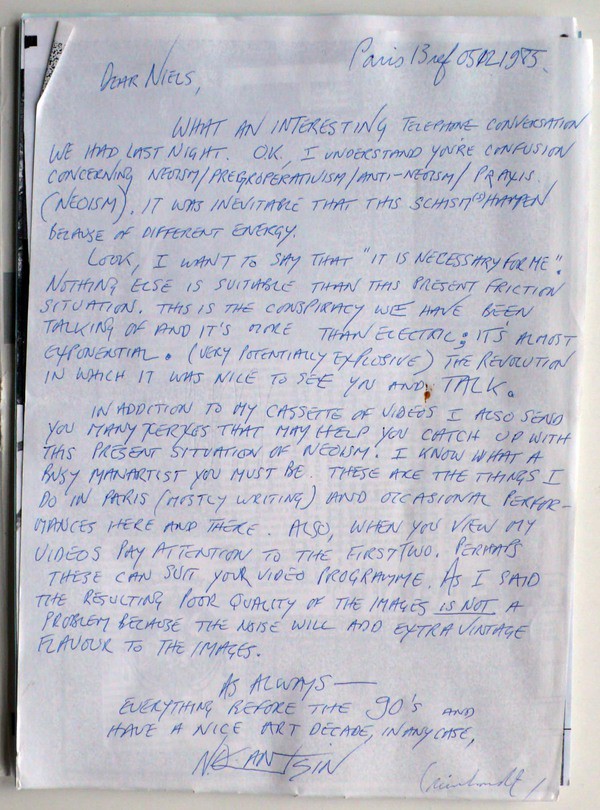 Paris Bref 05021985.
DEAR NIELS,
WHAT AN INTERESTING TELEPHONE CONVERSATION
WE HAD LAST NIGHT. O.K., I UNDERSTAND YOU'RE CONFUSION
CONCERNING NEOISM/PREGROPERATIVISM/ANTI-NEOISM/PRAXIS
(NEOISM). IT WAS INEVITABLE THAT THIS SCHISM(S) HAPPEN
BECAUSE OF DIFFERENT ENERGY.
LOOK, I WANT TO SAY THAT "IT IS NECESSARY FOR ME".
NOTHING ELSE IS SUITABLE THAN THIS PRESENT FRICTION
SITUATION. THIS IS THE CONSPIRACY WE HAVE BEEN
TALKING OF AND IT'S MORE THAN ELECTRIC; IT'S ALMOST
EXPONENTIAL. (VERY POTENTIALLY EXPLOSIVE) THE REVOLUTION
IN WHICH IT WAS NICE TO SEE YOU AND TALK.
IN ADDITION TO MY CASSETTE OF VIDEOS I ALSO SEND
YOU MANY XERXES THAT MAY HELP YOU CATCH UP WITH
THIS PRESENT SITUATION OF NEOISM. I KNOW WHAT A
BUSY MANARTIST YOU MUST BE. THESE ARE THE THINGS I
DO IN PARIS (MOSTLY WRITING) AND OCCASIONAL PERFOR-
MANCES HERE AND THERE. ALSO, WHEN YOU VIEW MY
VIDEOS PAY ATTENTION TO THE FIRST TWO. PERHAPS
THESE CAN SUIT YOUR VIDEO PROGRAMME. AS I SAID
THE RESULTING POOR QUALITY OF THE IMAGES IS NOT A
PROBLEM BECAUSE THE NOISE WILL ADD EXTRA VINTAGE
FLAVOUR TO THE IMAGES.
AS ALWAYS —
EVERYTHING BEFORE THE 90'S AND
HAVE A NICE ART DECADE, IN ANY CASE,